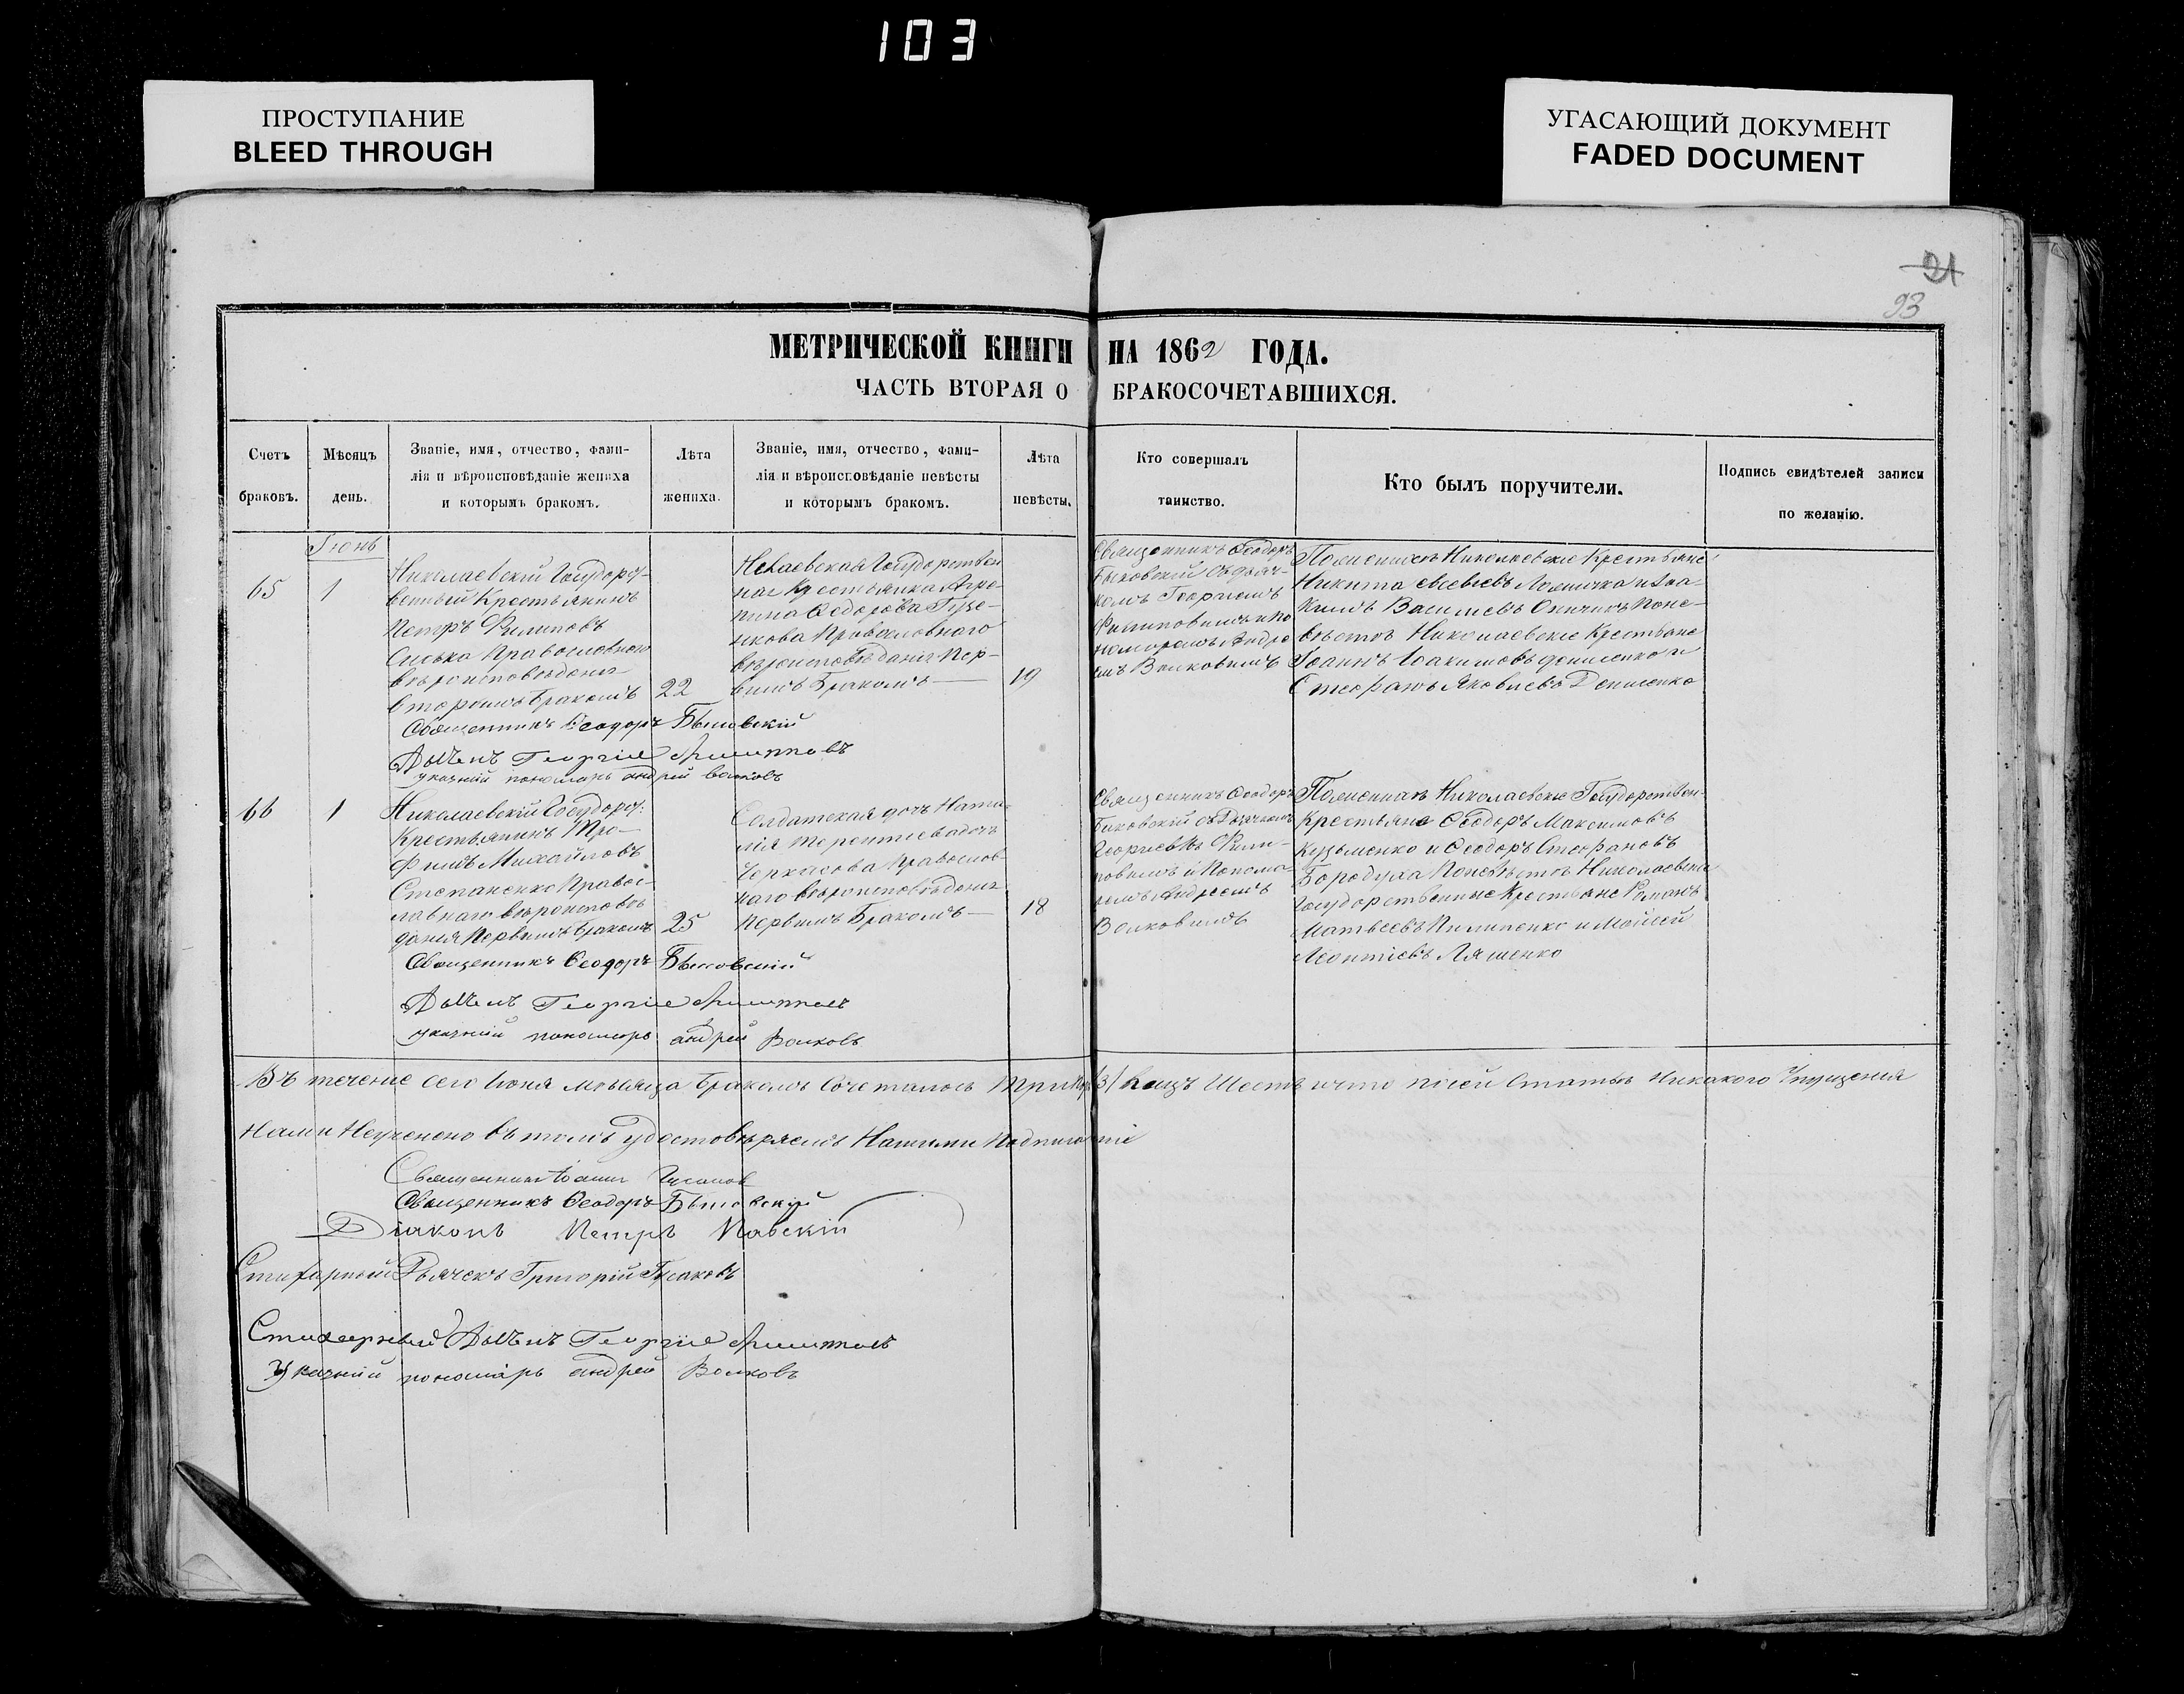 103
ПРОСТУПАНИЕ
BLEED THROUGH
УГАСАЮЩИЙ ДОКУМЕНТ
FADED DOCUMENT
21
93
МЕТРИЧЕСКОЙ КНИГИ НА 1862 ГОДА.
ЧАСТЬ ВТОРАЯ О БРАКОСОЧЕТАВШИХСЯ.
Счетъ
браковъ.
Мѣсяцъ
день.
Званіе, имя, отчество, фами-
лія и вѣроисповѣданіе жениха
и которымъ бракомъ.
Лѣта
жениха.
Званіе, имя, отчество, фами-
лія и вѣроисповѣданіе невѣсты
и которымъ бракомъ.
Лѣта
невѣсты.
Кто совершалъ
таинство.
Кто былъ поручители.
Подпись свидѣтелей записи
по желанію.
Іюнь
65
1
Николаевскій Государст-
венный Крестьянинъ
Петръ Филиповъ
Православнаго
вѣроисповѣденія
вторымъ бракомъ
22
Государствен
ная Крестьянка Агре-
пина Ѳедорова
Православнаго
вѣроисповѣданія Пер-
вымъ Бракомъ
19
Священникъ Ѳеодоръ
Быковскій съ дьяч-
комъ Георгіемъ
Филиповымъ и по
номоремъ Андре
емъ Волковымъ
Поженихѣ Николаевские Крестьяне
Никита
кимъ Васильевъ поне-
вѣстѣ Николаевские Крестьяне
Іоаннъ Іоакимовъ и
Стефанъ Яковлевъ Денисенко
Священникъ Ѳеодоръ Быковскій
Дьячекъ Георгій Филипповъ
указній пономарь андрей волковъ
66
1
Николаевскій Государст:
Крестьянинъ Тро-
фимъ Михайловъ
Степаненко Правос-
лавнаго вѣроисповѣ
данія Первымъ бракомъ
25
Солдатская дочь Ната
лія Терентіева дочь
Черкасова Православ
наго вѣроисповѣденія
Первымъ Бракомъ
18
Священникъ Ѳеодоръ
Быковскій съ Дьячкомъ
Георгіемъ Фили-
повымъ и Понома-
ремъ Андреемъ
Волковымъ
Поженихѣ Николаевские Государствен-
Крестьяне Ѳеодоръ Максимовъ
Кузьменко и Ѳеодоръ Стефановъ
Бородуха Поневѣстѣ Николаевские
Государственные Крестьяне Романъ
Матвеевъ Пилипенко и Моисей
Леонтіевъ Ляшенко
Священникъ Ѳеодоръ Быковскій
Дьячекъ Георгій Филипповъ
указній пономорь андрей Волковъ
Въ течение сего Іюня мѣсяца бракомъ Сочеталось три пары /3/ лицъ Шесть и что по сей Статьѣ Никакого Упущения
Нами Неучинено въ томъ удостовѣряемъ Нашими Подписами
Священникъ Іоаннъ Гусаковъ
Священникъ Ѳеодоръ Быковскій
Діаконъ Петръ
Стихарный Дьячекъ Григорій Гусаковъ
Стихарный Дьячекъ Георгій Филипповъ
Указній пономарь андрей Волковъ